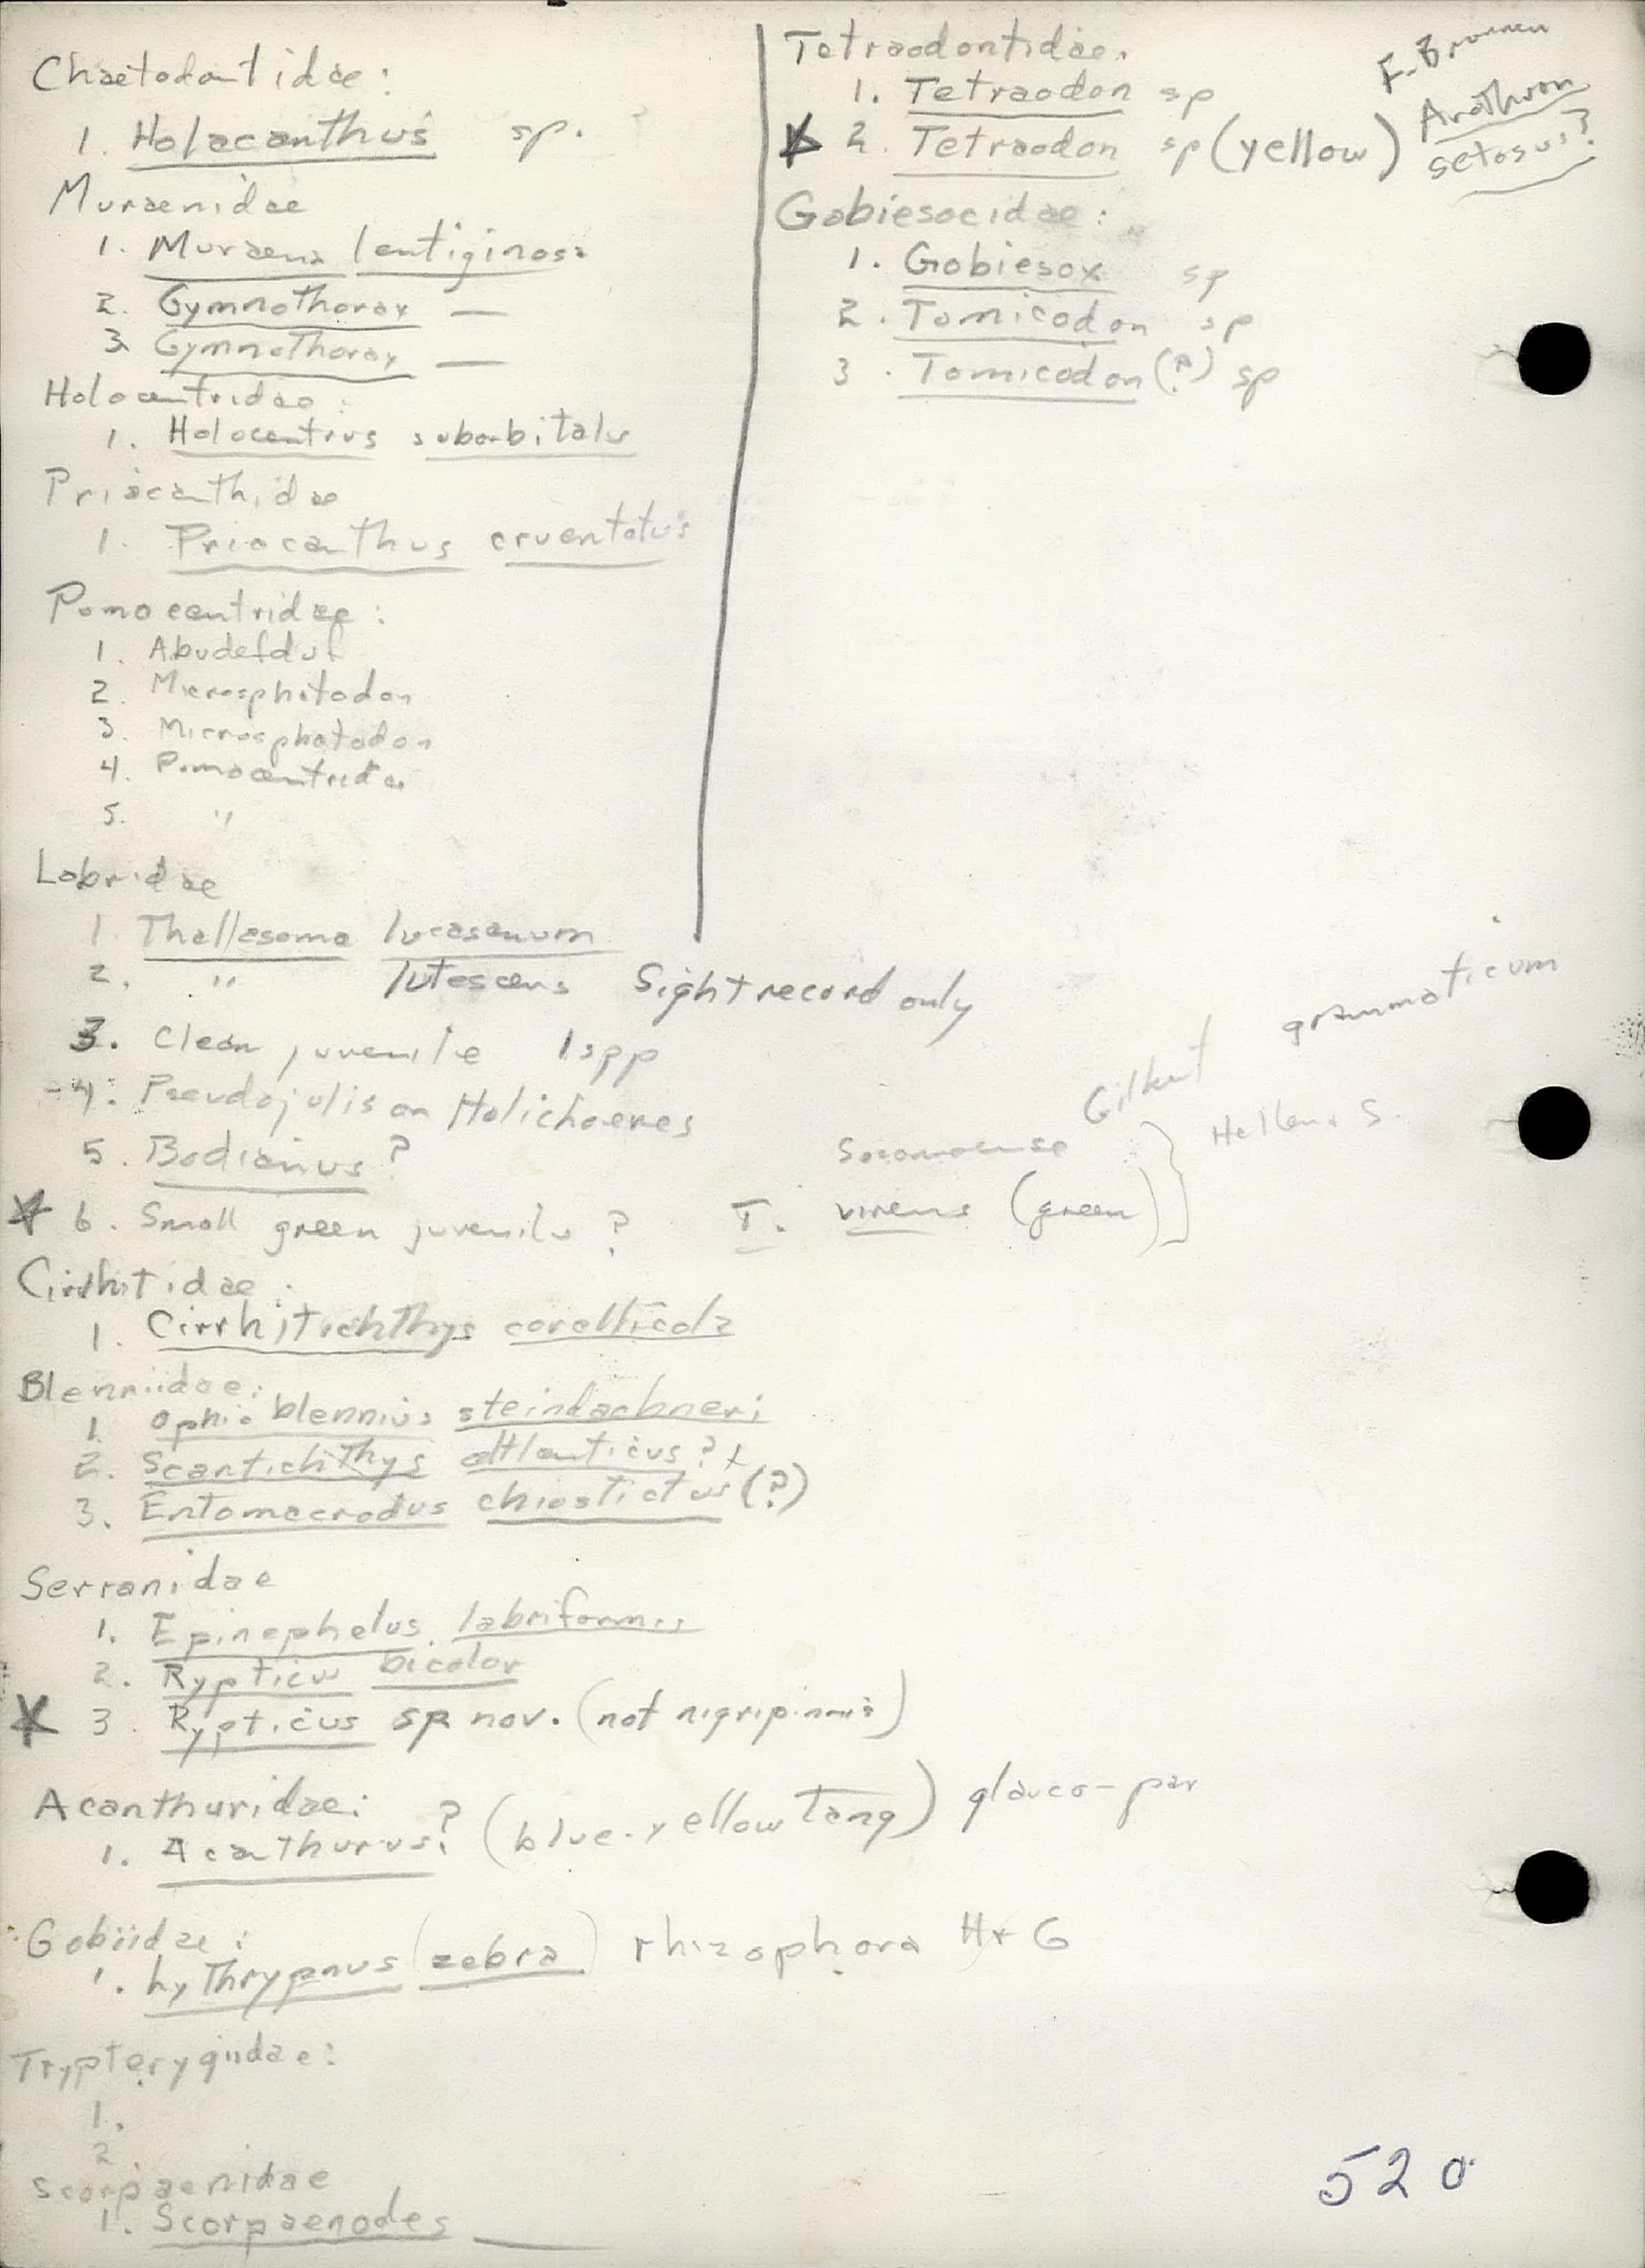 Chaetodontidae:
1. Holacanthus sp.
Muraenidae
1. Muraena lentiginosa
2. Gymnothorax —
3. Gymnothorax —
Holocentridae:
1. Holocentrus suborbitalis
Priacanthidae
1. Priacanthus cruentatus
Pomocentridae:
1. Abudefduf
2. Microsphatodon
3. Microsphatodon
4. Pomocentridae
5. "
Labridae
1. Thallasoma lucasanum
2. " lutescens Sight record only
3. Clean juvenile 1 spp
4. Pseudojulis on Holichoeres
5. Bodianus?
6. Small green juvenile ? T. virens (green)
Socorroense Gilbert grammaticum
Cirrhitidae:
1. Cirrhitichthys corallicola
Blenniidae:
1. Ophioblennius steindachneri
2. Scartichthys atlanticus?
3. Entomacrodus chiostictus (?)
Serranidae
1. Epinephelus labriformis
2. Rypticus bicolor
3. Rypticus sp nov. (not nigripinnis)
Acanthuridae:
1. Acanthurus? (blue-yellow Tang) glauco-par
Gobiidae:
1. Lythrypnus (zebra) rhizophora H+G
Trypterygiidae:
1.
2.
Scorpaenidae
1. Scorpaenodes —
Tetraodontidae.
1. Tetraodon sp
2. Tetraodon sp (yellow) Arothron
setosus?
Gobiesocidae:
1. Gobiesox sp
2. Tomicodon sp
3. Tomicodon (?) sp
520